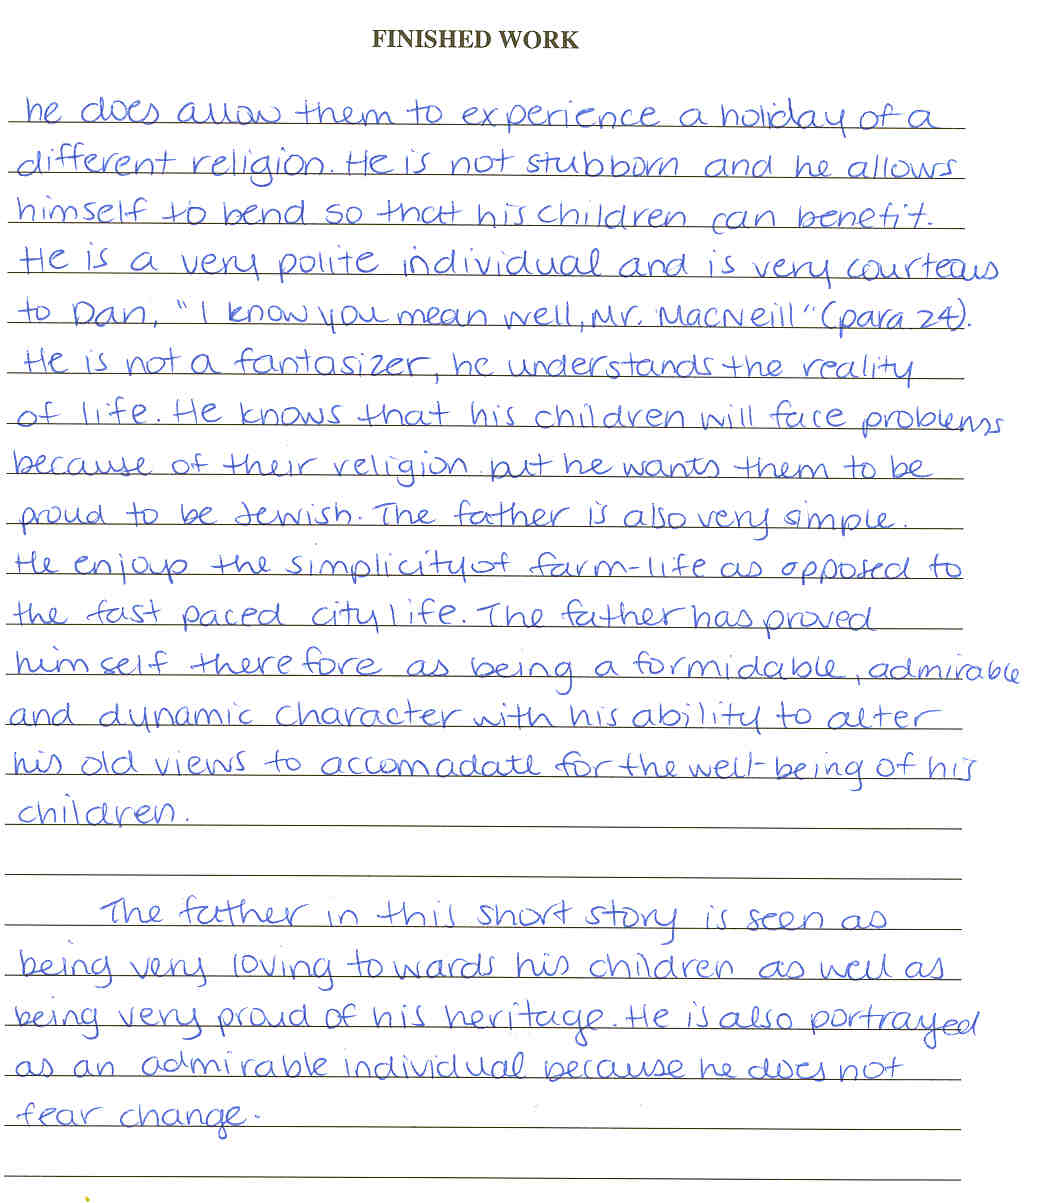 FINISHED WORK
he does allow them to experience a holiday of a
different religion. He is not stubborn and he allows
himself to bend so that his children can benefit.
He is a very polite individual and is very courteous
to Dan, "I know you mean well, Mr. MacNeill" (para 24).
He is not a fantasizer, he understands the reality
of life. He knows that his children will face problems
because of their religion but he wants them to be
proud to be Jewish. The father is also very simple.
He enjoys the simplicity of farm-life as opposed to
the fast paced city life. The father has proved
himself therefore as being a formidable, admirable
and dynamic character with his ability to alter
his old views to accomadate for the well-being of his
children.
The father in this short story is seen as
being very loving towards his children as well as
being very proud of his heritage. He is also portrayed
as an admirable individual because he does not
fear change.